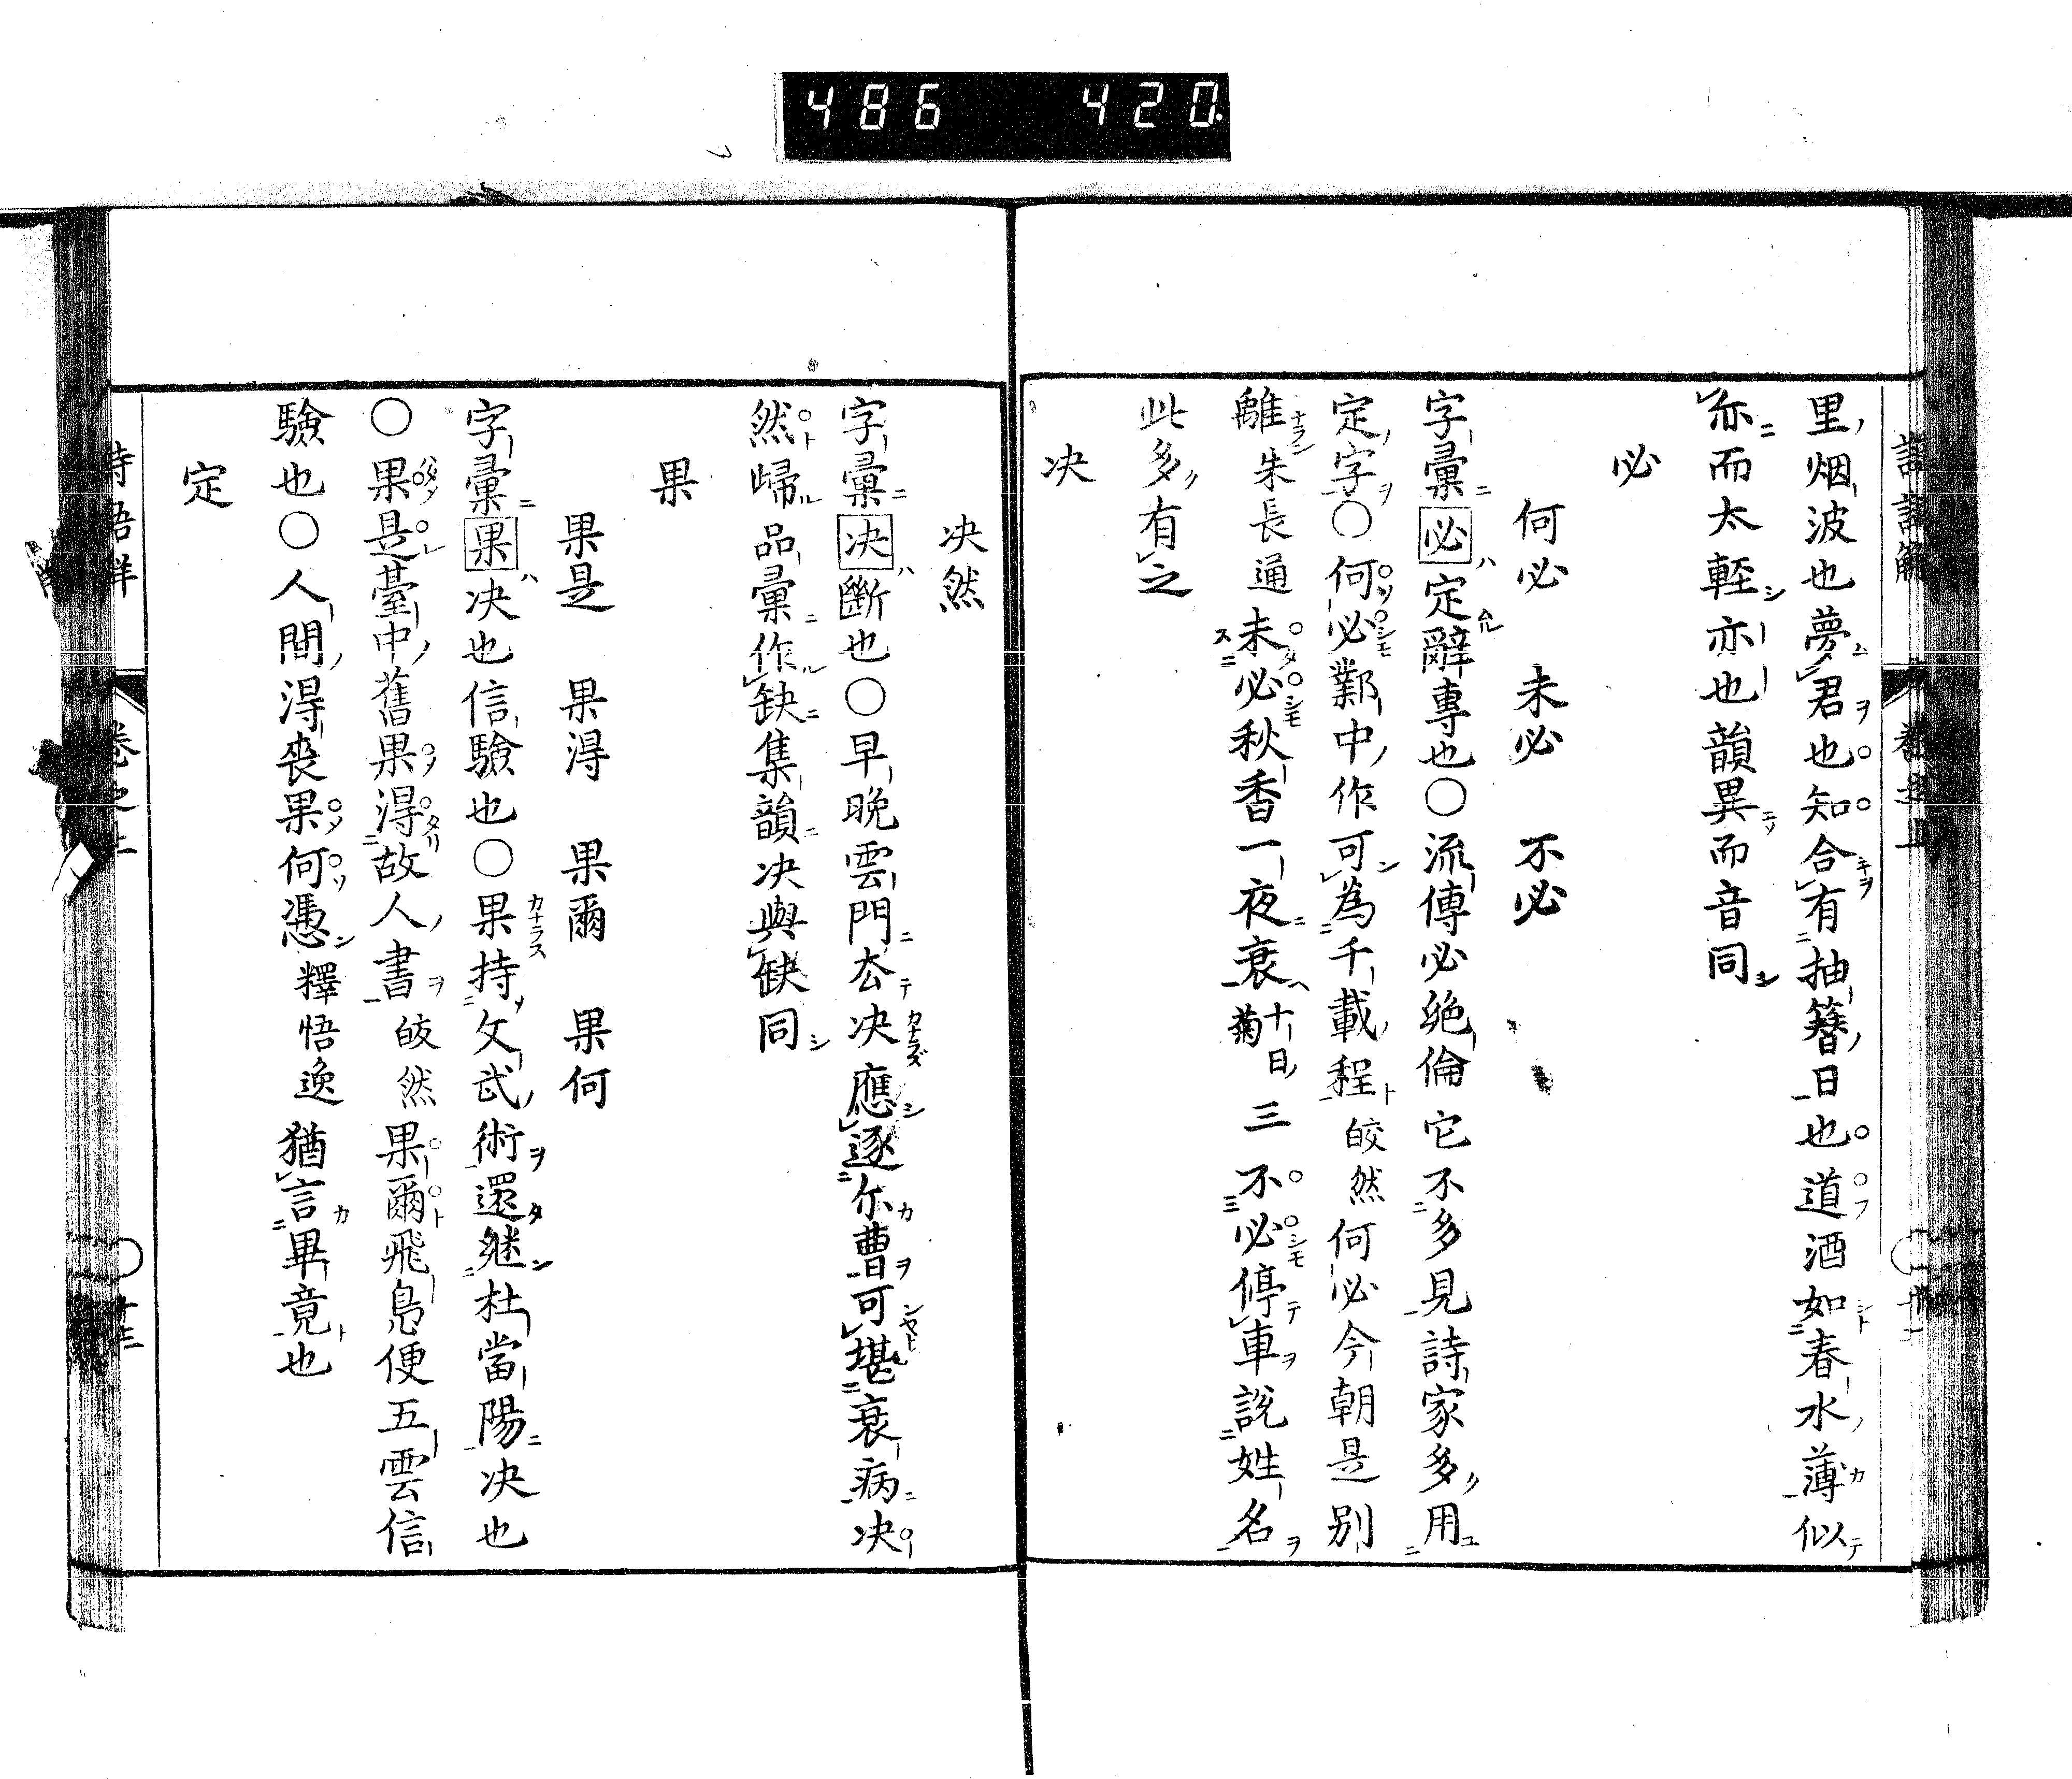 486 420
里烟波也夢君也知合有抽簪日也道酒如春水薄似
亦而太輕亦也韻異而音同
必
何必 未必 不必
字彙必定辭專也〇流傳必絶倫它不多見詩家多用
定字〇何必鄴中作可為千載程皎然何必今朝是別
離朱長通未必秋香一夜衰十日菊三不必停車說姓名
此多有之
决
决然
字彙决斷也〇早晚雲門去决應逐尓曹可堪衰病决
然歸品彙作缺集韻决與缺同
果
果是 果得 果爾 果何
字彙果决也信驗也〇果持文武術還継杜當陽决也
〇果是臺中舊果得故人書皎然果爾飛鳧便五雲信
驗也〇人間得喪果何憑釋悟逸猶言畢竟也
定